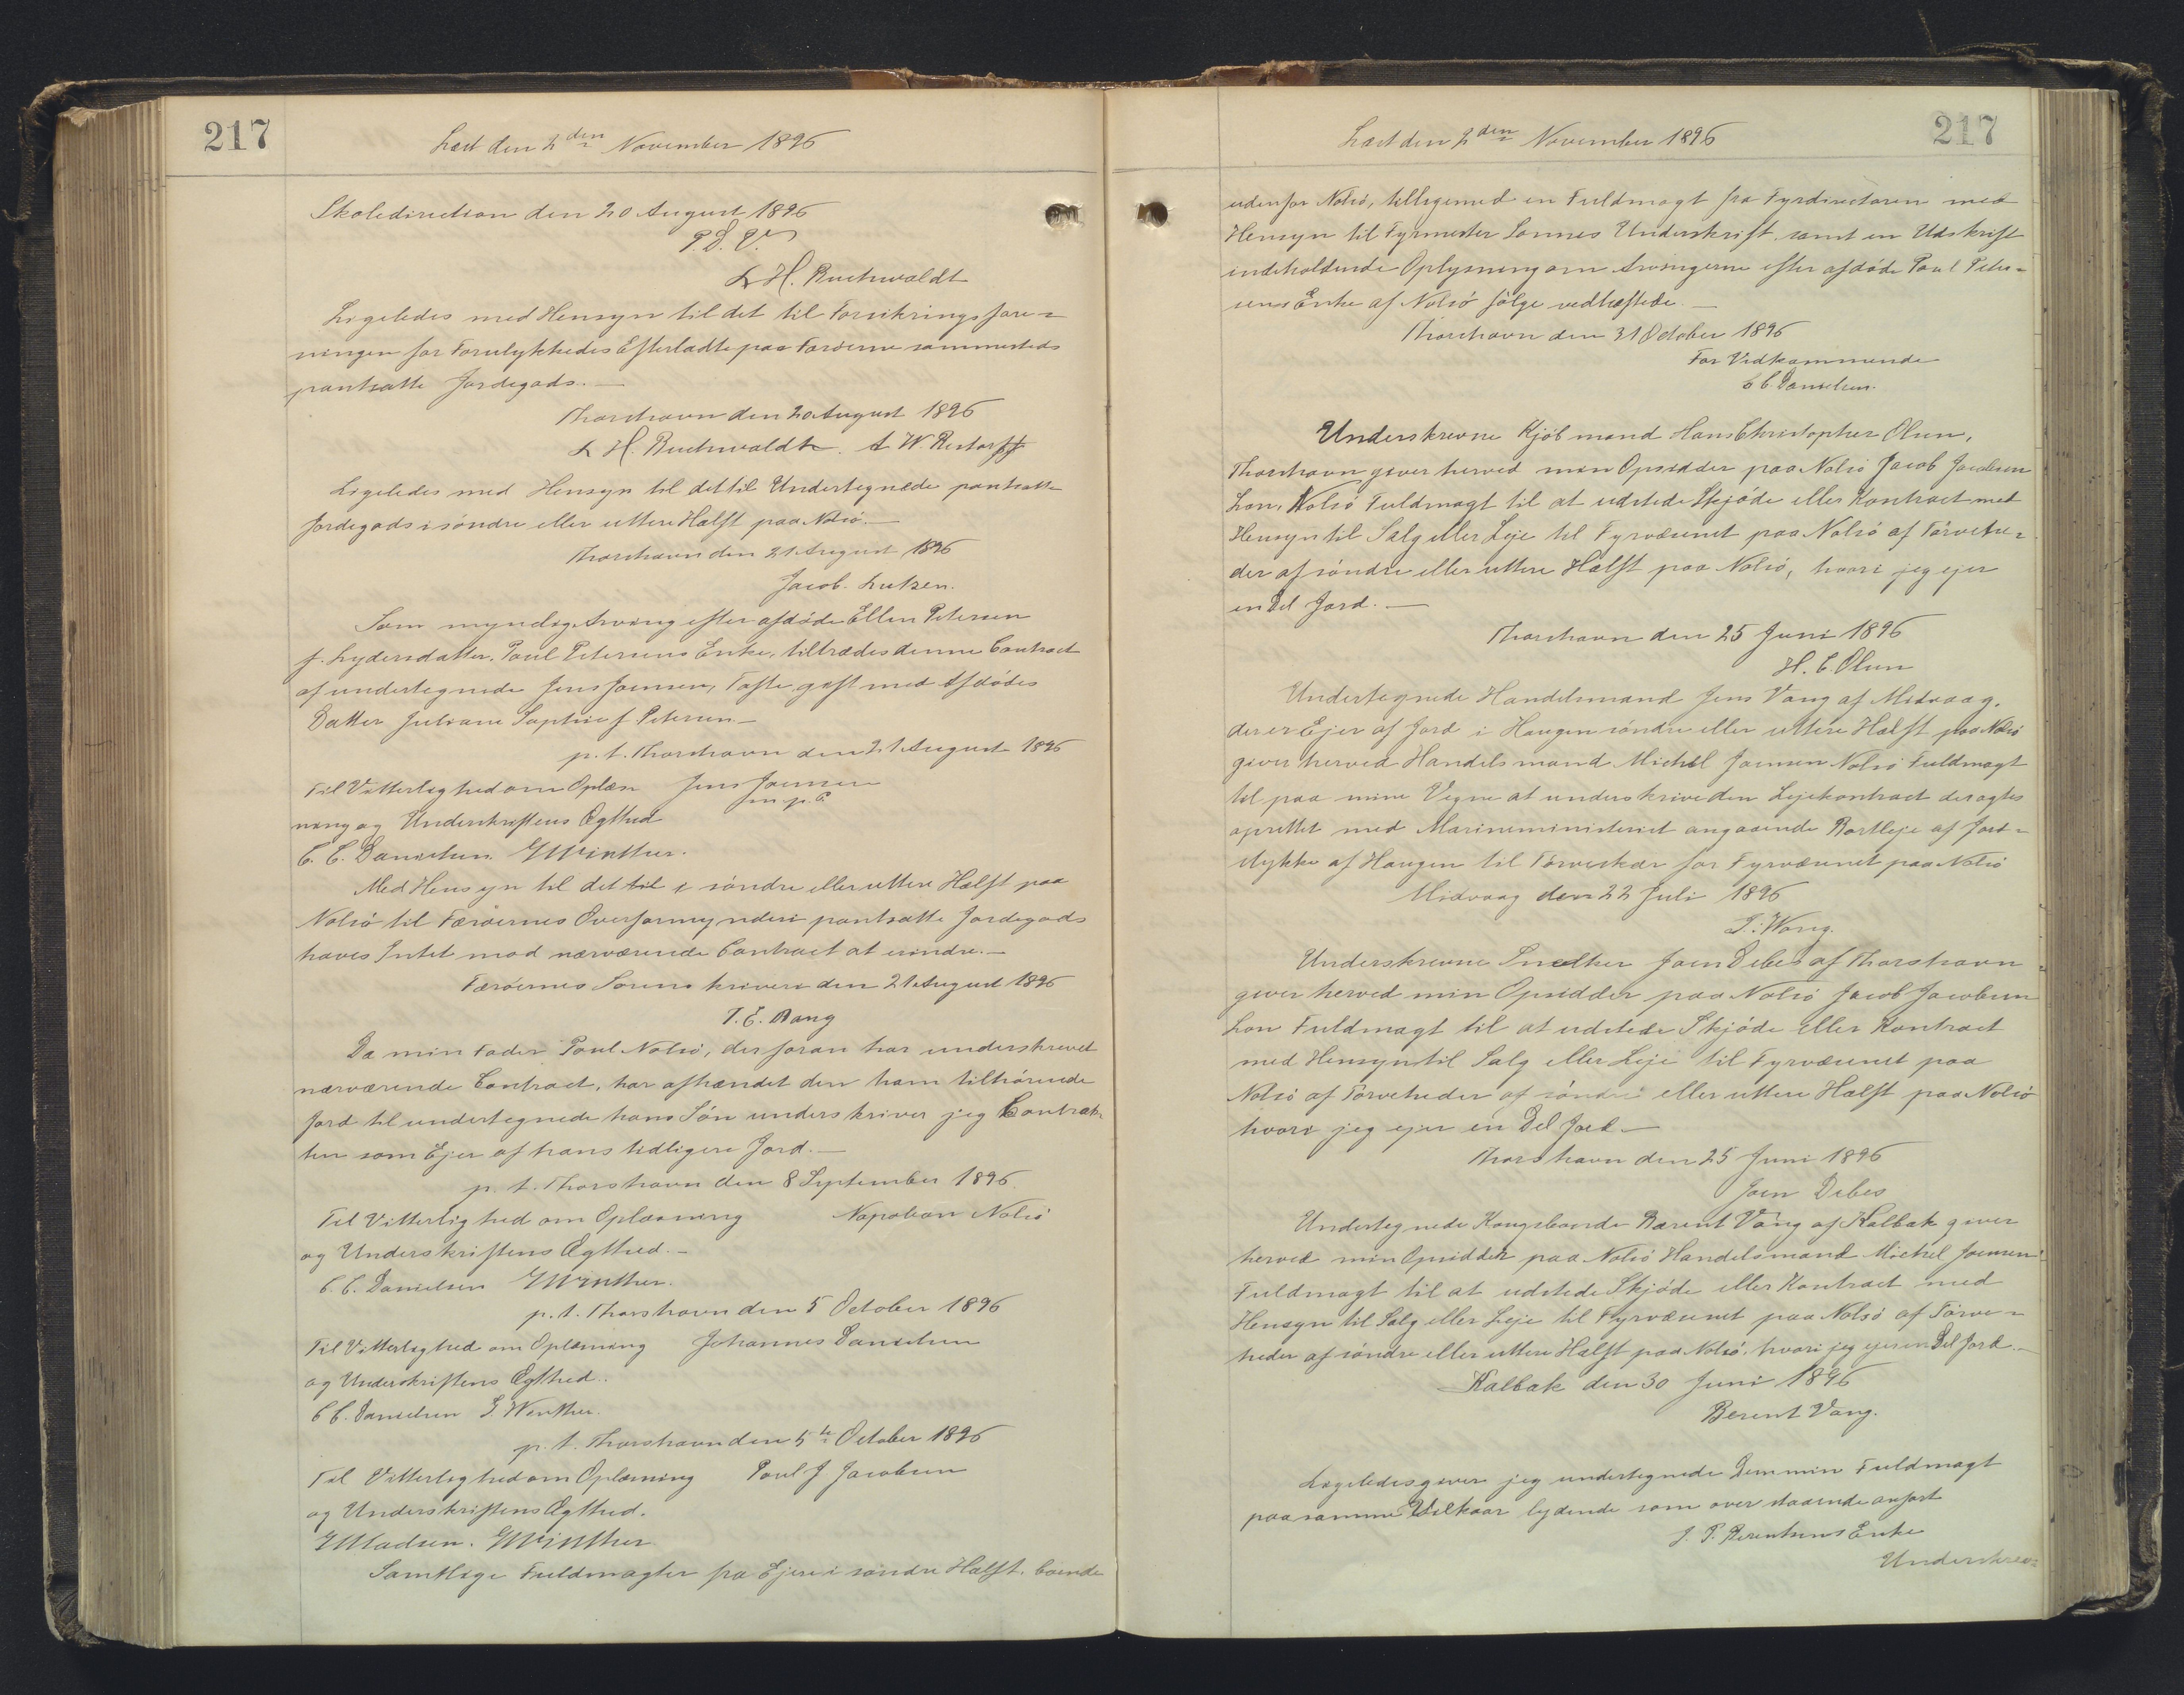 217
Læst den 2den November 1896
Skoledirection den 20 August 1896
P. D. V.
L H. Buchwaldt
Ligeledes med Hensyn til det til Forsikringsfore-
ningen for Forulykkedes Efterladte paa Færöerne sammesteds
pantsatte Jordegods.—
Thorshavn den 20 August 1896
L H. Buchwaldt. A W. Restorff
Ligeledes med Hensyn til det til Undertegnede pantsatte
Jordegods i söndre eller uttere Halft paa Nolsö.—
Thorshavn den 21 August 1896
Jacob Lutzen.
Som myndig Arving efter afdöde Ellen Petersen
f. Lydersdatter, Poul Petersens Enke, tiltrædes denne Contract
af undertegnede Jens Joensen, Tofte, gift med Afdödes
Datter Juliane Sophie f. Petersen.—
p. t. Thorshavn den 21 August 1896
Til Vitterlighed om Oplæs Jens Joensen
ning og Underskriftens Ægthed m. p. P.
C. C. Danielsen. E Winther.
Med Hensyn til det til i söndre eller uttere Halft paa
Nolsö til Færöernes Overformynderi pantsatte Jordegods
haves Intet mod nærværende Contract at erindre.—
Færöernes Sorenskriveri den 21 August 1896
T. E. Bang
Da min Fader Poul Nolsö, der foran har underskrevet
nærværende Contract, har afhændet den ham tilhörende
Jord til undertegnede hans Sön underskriver jeg Contrak-
ten som Ejer af hans tidligere Jord.—
p. t. Thorshavn den 8 September 1896.
Til Vitterlighed om Oplæsning Napoleon Nolsö
og Underskriftens Ægthed.—
C. C. Danielsen E Winther.
p. t. Thorshavn den 5 October 1896
Til Vitterlighed om Oplæsning Johannes Danielsen
og Underskriftens Ægthed.
C C. Danielsen E Winther.
p. t. Thorshavn den 5te October 1896
Til Vitterlighed om Oplæsning Poul J Jacobsen
og Underskriftens Ægthed.
E Madsen. E Winther
Samtlige Fuldmagter fra Ejere i söndre Halft, boende
217
Læst den 2den November 1896
udenfor Nolsö, tilligemed en Fuldmagt fra Fyrdirectoren med
Hensyn til Fyrmester Sonnes Underskrift samt en Udskrift
indeholdende Oplysning om Arvingerne efter afdöde Poul Peter-
sens Enke af Nolsö fölge vedhæftede.—
Thorshavn den 31 October 1896
For Vedkommende
C C. Danielsen.
Underskrevne Kjöbmand Hans Christopher Olsen,
Thorshavn giver herved min Opsidder paa Nolsö Jacob Jacobsen
Lon, Nolsö Fuldmagt til at udstede Skjöde eller Kontract med
Hensyn til Salg eller Leje til Fyrvæsenet paa Nolsö af Törvehe-
der af söndre eller uttere Halft paa Nolsö, hvori jeg ejer
en Del Jord.—
Thorshavn den 25 Juni 1896
H. C. Olsen
Undertegnede Handelsmand Jens Vang af Midvaag,
der er Ejer af Jord i Haugen söndre eller uttere Halft paa Nolsö
giver herved Handelsmand Michel Joensen Nolsö Fuldmagt
til paa mine Vegne at underskrive den Lejekontract der agtes
oprettet med Marineministeriet angaaende Bortleje af Jord-
stykke af Haugen til Törveskær for Fyrvæsenet paa Nolsö
Midvaag den 22 Juli 1896
J. Wang.
Underskrevne Snedker Joen Debes af Thorshavn
giver herved min Opsidder paa Nolsö Jacob Jacobsen
Lon Fuldmagt til at udstede Skjöde eller Kontract
med Hensyn til Salg eller Leje til Fyrvæsenet paa
Nolsö af Törveheder af söndre eller uttere Halft paa Nolsö
hvori jeg ejer en Del Jord.—
Thorshavn den 25 Juni 1896
Joen Debes
Undertegnede Kongsbonde Berent Vang af Kalbak giver
herved min Opsidder paa Nolsö Handelsmand Michel Joensen
Fuldmagt til at udstede Skjöde eller Kontract med
Hensyn til Salg eller Leje til Fyrvæsenet paa Nolsö af Törve-
heder af söndre eller uttere Halft paa Nolsö, hvori jeg ejer en Del Jord.—
Kalbak den 30 Juni 1896
Berent Vang.
Ligeledes giver jeg undertegnede Dem min Fuldmagt
paa samme Vilkaar lydende som over staaende anfört
J. P. Berentsens Enke
Underskrev-